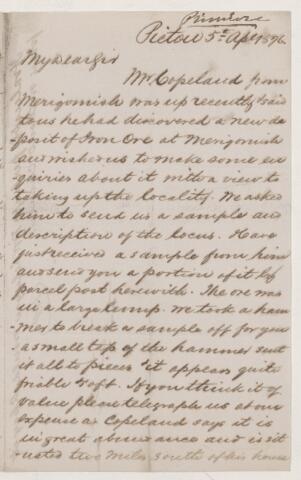 Pictou 5th Apl 1896
My Dear Sir
Mr Copeland from
Merigomish was up recently & said
to us he had discovered a new de
posit of Iron Ore at Merigomish
and asked us to make some en
quiries about it with a view to
taking up the locality. We asked
him to send us a sample and
description of the locus. Have
just received a sample from him
and send you a portion of it by
parcel post herewith. The ore was
in a large lump. We took a ham
mer to break a sample off for you
a small tap of the hammer sent
it all to pieces & it appears quite
friable & soft. If you think it of
value please telegraph us at our
expense as Copeland says it is
in great abundance and is sit
uated two miles south of his house